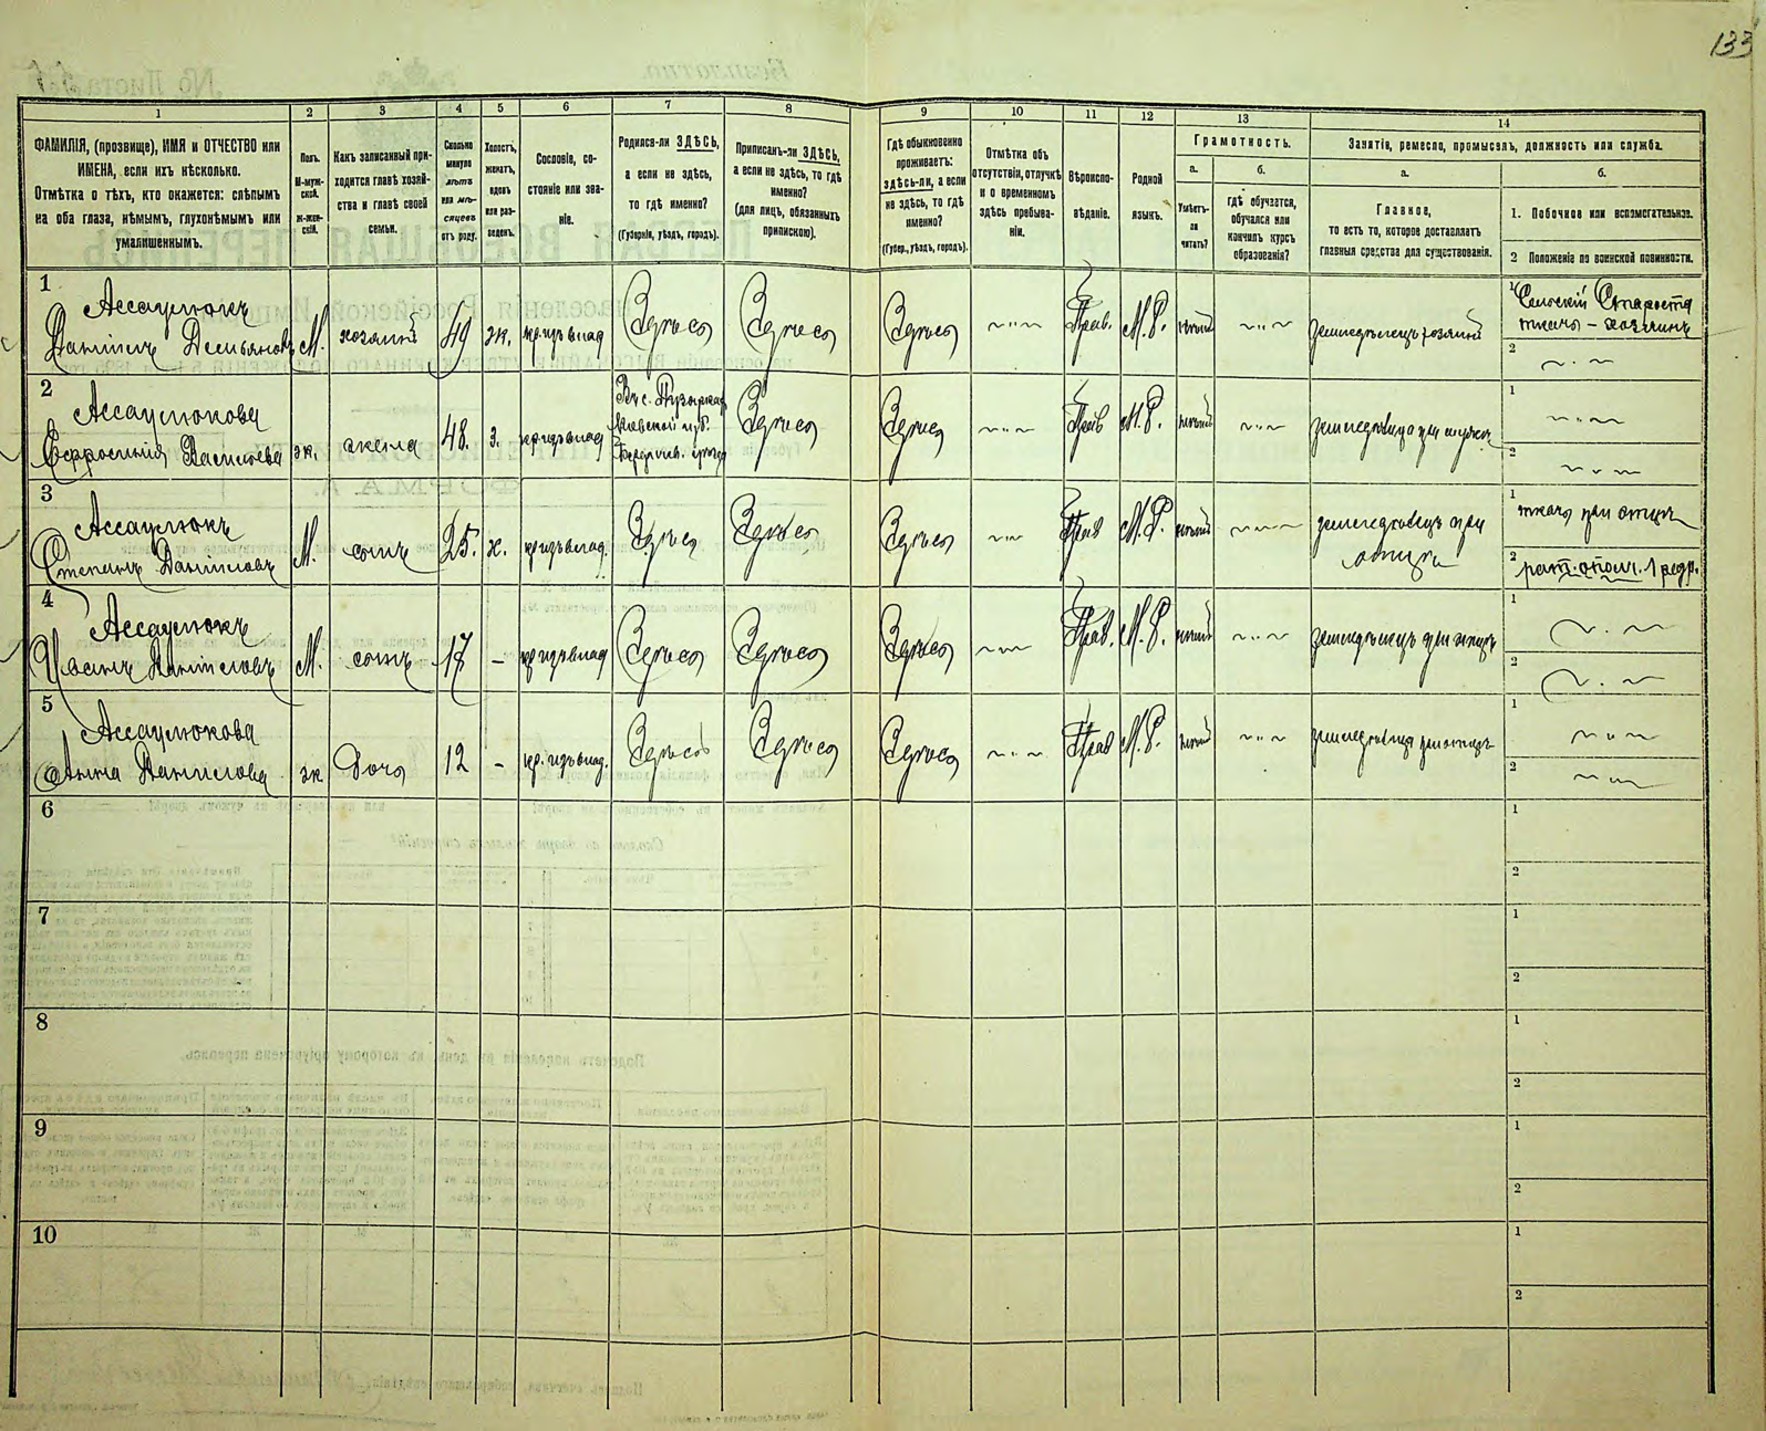 133
1
2
3
4
5
6
7
8
9
10
11
12
13
14
ФАМИЛІЯ, (прозвище), ИМЯ и ОТЧЕСТВО или
ИМЕНА, если ихъ нѣсколько.
Отмѣтка о тѣхъ, кто окажется: слѣпымъ
на оба глаза, нѣмымъ, глухонѣмымъ или
умалишеннымъ.
Полъ.
М-муж-
ской.
ж-жен-
скій.
Какъ записанный при-
ходится главѣ хозяй-
ства и главѣ своей
семьи.
Сколько
минуло
лѣтъ
или мѣ-
сяцевъ
отъ роду.
Холостъ,
женатъ,
вдовъ
или раз-
веденъ.
Сословіе, со-
стояніе или зва-
ніе.
Родился-ли ЗДѢСЬ,
а если не здѣсь,
то гдѣ именно?
(Губернія, уѣздъ, городъ).
Приписанъ-ли ЗДѢСЬ,
а если не здѣсь, то гдѣ
именно?
(для лицъ, обязанныхъ
припискою).
Гдѣ обыкновенно
проживаетъ:
здѣсь-ли, а если
не здѣсь, то гдѣ
именно?
(Губер., уѣздъ, городъ).
Отмѣтка объ
отсутствіи, отлучкѣ
и о временномъ
здѣсь пребыва-
ніи.
Вѣроиспо-
вѣданіе.
Родной
языкъ.
Грамотность.
а.
Умѣетъ-
ли
читать?
б.
гдѣ обучается,
обучался или
кончилъ курсъ
образованія?
Занятіе, ремесло, промыселъ, должность или служба.
а.
Главное,
то есть то, которое доставляетъ
главныя средства для существованія.
б.
1. Побочное или вспомогательное.
2 Положеніе по воинской повинности.
1
Ассаулюкъ
Даніилъ Демьяновъ
М.
хозяинъ
49
ж.
кр. изъ влад
Здѣсь
Здѣсь
Здѣсь
Прав.
М.Р.
земледѣлецъ хозяинъ
1 Сельскій Староста
ткачъ - хозяинъ
2
2
Ассаулюкова
Евфросинія Васильева
ж.
жена
48.
з.
кр. изъ влад
Въ с.
Кіевской губ.
Бердичев. уѣзда
Здѣсь
Здѣсь
Прав
М.Р.
земледѣлица при мужѣ
1
2
3
Ассаулюкъ
Степанъ Даніиловъ
М.
сынъ
25.
х.
кр изъ влад.
Здѣсь
Здѣсь
Здѣсь
Прав
М.Р.
земледѣлецъ при
отцѣ
1
ткачъ при отцѣ
2
рат. опол. 1 разр.
4
Ассаулюкъ
Даніиловъ
М.
сынъ
17
-
кр изъ влад
Здѣсь
Здѣсь
Здѣсь
Прав.
М.Р.
земледѣлецъ при отцѣ
1
2
5
Ассаулюкова
Анна Данилова
ж
дочь
12
-
кр. изъ влад.
Здѣсь
Здѣсь
Здѣсь
Прав
М.Р.
земледѣлица при отцѣ
1
2
6
1
2
7
1
2
8
1
2
9
1
2
10
1
2